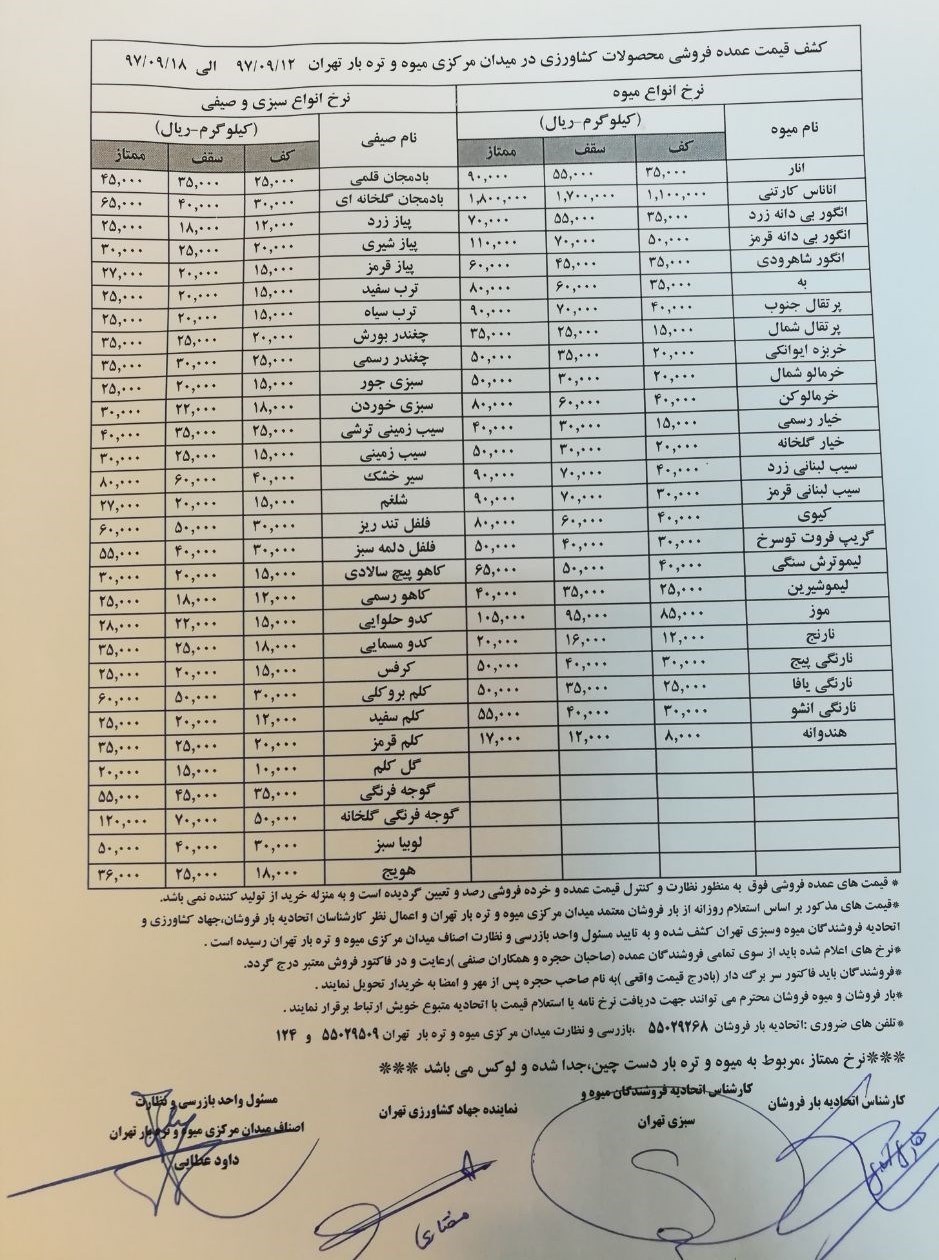 کشف قیمت عمده فروشی محصولات کشاورزی در میدان مرکزی میوه و تره بار تهران ۹۷/۰۹/۱۲ الی ۹۷/۰۹/۱۸
نرخ انواع میوه
نام میوه (کیلوگرم-ریال)
کف سقف ممتاز
انار ۳۵,۰۰۰ ۵۵,۰۰۰ ۹۰,۰۰۰
اناناس کارتنی ۱,۱۰۰,۰۰۰ ۱,۷۰۰,۰۰۰ ۱,۸۰۰,۰۰۰
انگور بی دانه زرد ۳۵,۰۰۰ ۵۵,۰۰۰ ۷۰,۰۰۰
انگور بی دانه قرمز ۵۰,۰۰۰ ۷۰,۰۰۰ ۱۱۰,۰۰۰
انگور شاهرودی ۳۵,۰۰۰ ۴۵,۰۰۰ ۶۰,۰۰۰
به ۳۵,۰۰۰ ۶۰,۰۰۰ ۸۰,۰۰۰
پرتقال جنوب ۴۰,۰۰۰ ۷۰,۰۰۰ ۹۰,۰۰۰
پرتقال شمال ۱۵,۰۰۰ ۲۵,۰۰۰ ۳۵,۰۰۰
خربزه ایوانکی ۲۰,۰۰۰ ۳۵,۰۰۰ ۵۰,۰۰۰
خرمالو شمال ۲۰,۰۰۰ ۳۰,۰۰۰ ۵۰,۰۰۰
خرمالوکن ۴۰,۰۰۰ ۶۰,۰۰۰ ۸۰,۰۰۰
خیار رسمی ۱۵,۰۰۰ ۳۰,۰۰۰ ۴۰,۰۰۰
خیار گلخانه ۲۰,۰۰۰ ۳۰,۰۰۰ ۵۰,۰۰۰
سیب لبنانی زرد ۴۰,۰۰۰ ۷۰,۰۰۰ ۹۰,۰۰۰
سیب لبنانی قرمز ۳۰,۰۰۰ ۷۰,۰۰۰ ۹۰,۰۰۰
کیوی ۴۰,۰۰۰ ۶۰,۰۰۰ ۸۰,۰۰۰
گریپ فروت توسرخ ۳۰,۰۰۰ ۴۰,۰۰۰ ۵۰,۰۰۰
لیموترش سنگی ۴۰,۰۰۰ ۵۰,۰۰۰ ۶۵,۰۰۰
لیموشیرین ۲۵,۰۰۰ ۳۵,۰۰۰ ۴۰,۰۰۰
موز ۸۵,۰۰۰ ۹۵,۰۰۰ ۱۰۵,۰۰۰
نارنج ۱۲,۰۰۰ ۱۶,۰۰۰ ۲۰,۰۰۰
نارنگی پیج ۳۰,۰۰۰ ۴۰,۰۰۰ ۵۰,۰۰۰
نارنگی یافا ۲۵,۰۰۰ ۳۵,۰۰۰ ۵۰,۰۰۰
نارنگی انشو ۳۰,۰۰۰ ۴۰,۰۰۰ ۵۵,۰۰۰
هندوانه ۸,۰۰۰ ۱۲,۰۰۰ ۱۷,۰۰۰
نرخ انواع سبزی و صیفی
نام صیفی (کیلوگرم-ریال)
کف سقف ممتاز
بادمجان قلمی ۲۵,۰۰۰ ۳۵,۰۰۰ ۴۵,۰۰۰
بادمجان گلخانه ای ۳۰,۰۰۰ ۴۰,۰۰۰ ۶۵,۰۰۰
پیاز زرد ۱۲,۰۰۰ ۱۸,۰۰۰ ۲۵,۰۰۰
پیاز شیری ۲۰,۰۰۰ ۲۵,۰۰۰ ۳۰,۰۰۰
پیاز قرمز ۱۵,۰۰۰ ۲۰,۰۰۰ ۲۷,۰۰۰
ترب سفید ۱۵,۰۰۰ ۲۰,۰۰۰ ۲۵,۰۰۰
ترب سیاه ۱۵,۰۰۰ ۲۰,۰۰۰ ۲۵,۰۰۰
چغندر بورش ۲۰,۰۰۰ ۲۵,۰۰۰ ۳۵,۰۰۰
چغندر رسمی ۲۵,۰۰۰ ۳۰,۰۰۰ ۳۵,۰۰۰
سبزی جور ۱۵,۰۰۰ ۲۰,۰۰۰ ۲۵,۰۰۰
سبزی خوردن ۱۸,۰۰۰ ۲۲,۰۰۰ ۳۰,۰۰۰
سیب زمینی ترشی ۲۵,۰۰۰ ۳۵,۰۰۰ ۴۰,۰۰۰
سیب زمینی ۱۵,۰۰۰ ۲۵,۰۰۰ ۳۰,۰۰۰
سیر خشک ۴۰,۰۰۰ ۶۰,۰۰۰ ۸۰,۰۰۰
شلغم ۱۵,۰۰۰ ۲۰,۰۰۰ ۲۷,۰۰۰
فلفل تند ریز ۳۰,۰۰۰ ۵۰,۰۰۰ ۶۰,۰۰۰
فلفل دلمه سبز ۳۰,۰۰۰ ۴۰,۰۰۰ ۵۵,۰۰۰
کاهو پیچ سالادی ۱۵,۰۰۰ ۲۰,۰۰۰ ۳۰,۰۰۰
کاهو رسمی ۱۲,۰۰۰ ۱۸,۰۰۰ ۲۵,۰۰۰
کدو حلوایی ۱۵,۰۰۰ ۲۲,۰۰۰ ۲۸,۰۰۰
کدو مسمایی ۱۸,۰۰۰ ۲۵,۰۰۰ ۳۵,۰۰۰
کرفس ۱۵,۰۰۰ ۲۰,۰۰۰ ۲۵,۰۰۰
کلم بروکلی ۳۰,۰۰۰ ۵۰,۰۰۰ ۶۰,۰۰۰
کلم سفید ۱۲,۰۰۰ ۲۰,۰۰۰ ۲۵,۰۰۰
کلم قرمز ۲۰,۰۰۰ ۲۵,۰۰۰ ۳۵,۰۰۰
گل کلم ۱۰,۰۰۰ ۱۵,۰۰۰ ۲۰,۰۰۰
گوجه فرنگی ۳۵,۰۰۰ ۴۵,۰۰۰ ۵۵,۰۰۰
گوجه فرنگی گلخانه ۵۰,۰۰۰ ۷۰,۰۰۰ ۱۲۰,۰۰۰
لوبیا سبز ۳۰,۰۰۰ ۴۰,۰۰۰ ۵۰,۰۰۰
هویج ۱۸,۰۰۰ ۲۵,۰۰۰ ۳۶,۰۰۰
* قیمت های عمده فروشی فوق به منظور نظارت و کنترل قیمت عمده و خرده فروشی رصد و تعیین گردیده است و به منزله خرید از تولید کننده نمی باشد.
*قیمت های مذکور بر اساس استعلام روزانه از بار فروشان معتمد میدان مرکزی میوه و تره بار تهران و اعمال نظر کارشناسان اتحادیه بار فروشان،جهاد کشاورزی و
اتحادیه فروشندگان میوه وسبزی تهران کشف شده و به تایید مسئول واحد بازرسی و نظارت اصناف میدان مرکزی میوه و تره بار تهران رسیده است .
*نرخ های اعلام شده باید از سوی تمامی فروشندگان عمده (صاحبان حجره و همکاران صنفی )رعایت و در فاکتور فروش معتبر درج گردد.
*فروشندگان باید فاکتور سر برگ دار (بادرج قیمت واقعی )به نام صاحب حجره پس از مهر و امضا به خریدار تحویل نمایند .
*بار فروشان و میوه فروشان محترم می توانند جهت دریافت نرخ نامه یا استعلام قیمت با اتحادیه متبوع خویش ارتباط برقرار نمایند .
*تلفن های ضروری :اتحادیه بار فروشان ۵۵۰۲۹۲۶۸ ،بازرسی و نظارت میدان مرکزی میوه و تره بار تهران ۵۵۰۲۹۵۰۹ و ۱۲۴
***نرخ ممتاز ،مربوط به میوه و تره بار دست چین،جدا شده و لوکس می باشد ***
کارشناس اتحادیه بار فروشان
کارشناس اتحادیه فروشندگان میوه و
سبزی تهران
نماینده جهاد کشاورزی تهران
مسئول واحد بازرسی و نظارت
اصناف میدان مرکزی میوه و تره بار تهران
داود عطایی
مختاری